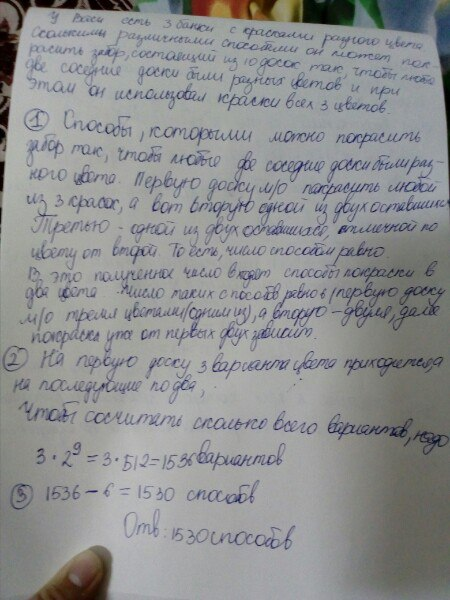 У Васи есть 3 банки с красками разного цвета
Сколькими различными способами он может пок
расить забор, состоящий из 10 досок так, чтобы любые
две соседние доски были разных цветов и при
этом он использовал краски всех 3 цветов.
① Способы, которыми можно покрасить
забор так, чтобы любые две соседние доски были раз-
ного цвета. Первую доску м/о покрасить любой
из 3 красок, а вот вторую одной из двух оставшихся
Третью - одной из двух оставшихся, отличной по
цвету от второй. То есть, число способом равно.
В это полученное число входят способы покраски в
два цвета. Число таких способов равно 6 (первую доску
м/о тремя цветами (одним из), а вторую - двумя, далее
покраска уже от первых двух зависит.
② На первую доску 3 варианта цвета приходится, а
на последующие по два,
Чтобы сосчитать сколько всего вариантов, надо
3 · 2⁹ = 3 · 512 = 1536 вариантов
③ 1536 - 6 = 1530 способов
Отв: 1530 способов